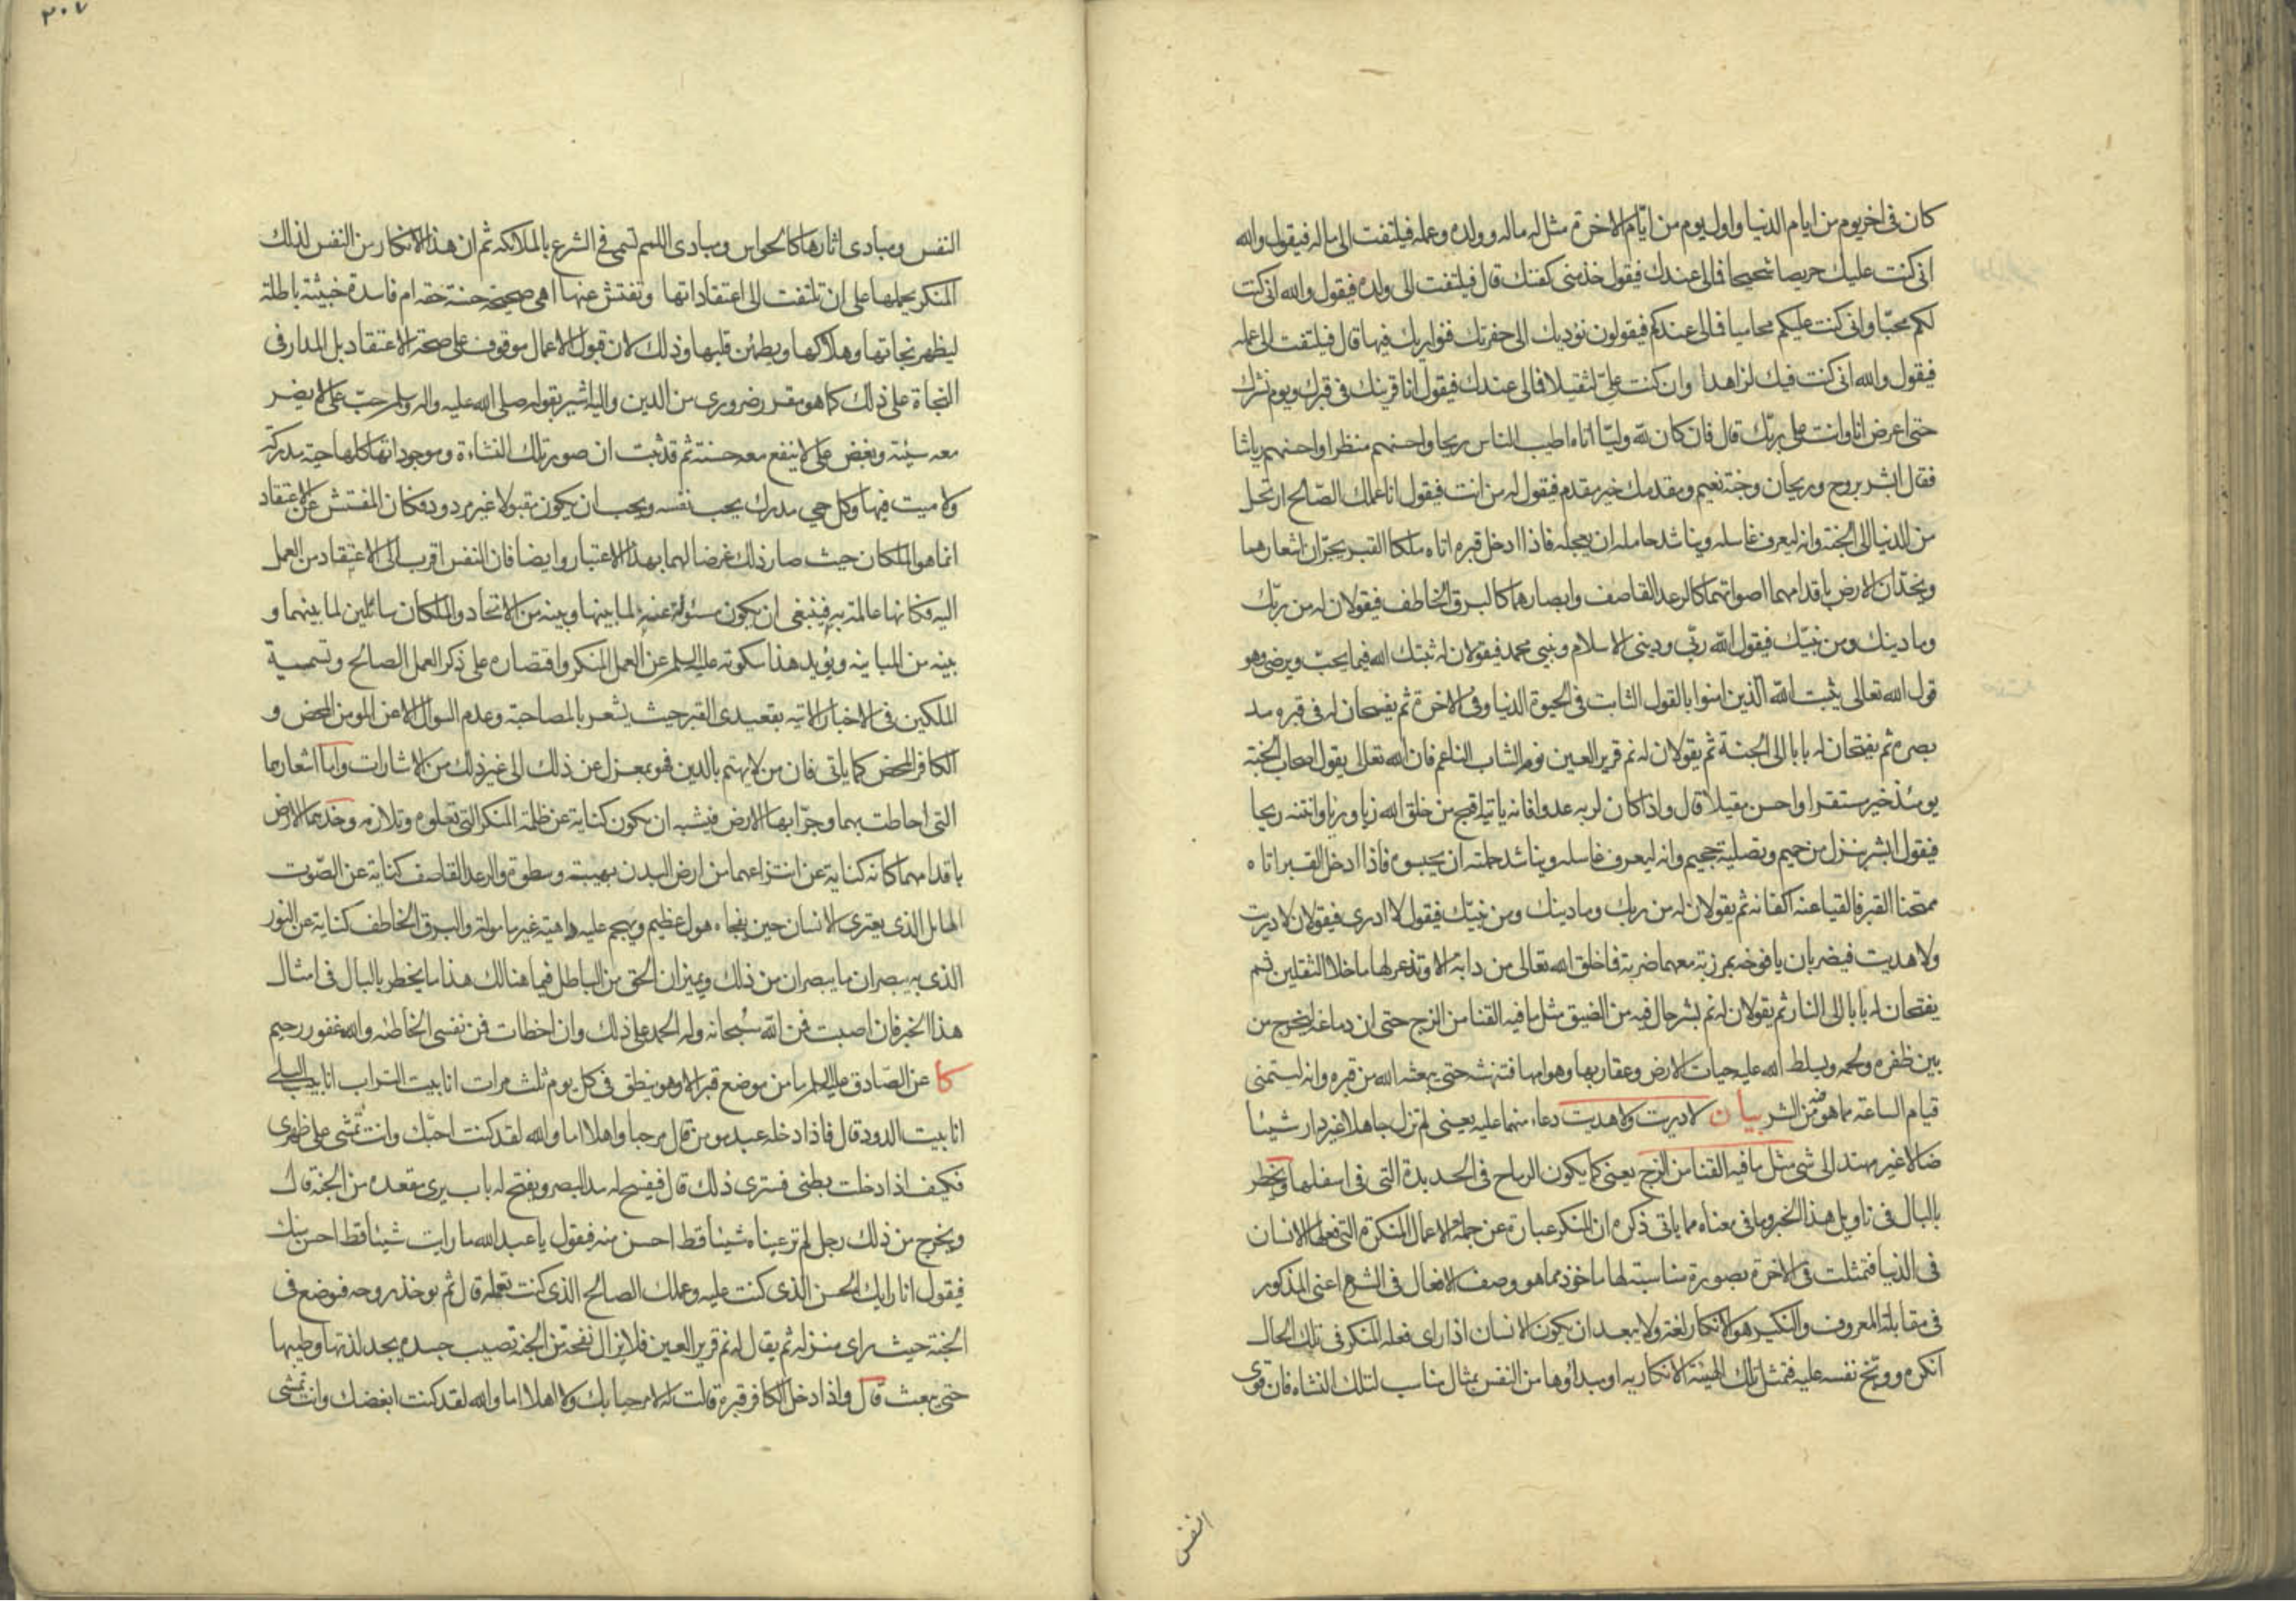 كان فى اخر يوم من ايام الدنيا واول يوم من ايّام الاخرة مثل له ماله وولده وعمله فيلتفت الى ماله فيقول والله
انى كنت عليك حريصا شحيحا فمالى عندك فيقول خذ منى كفنك قال فيلتفت الى ولده فيقول والله انى كنت
لكم محبّا وانى كنت عليكم محاميا فمالى عندكم فيقولون نؤديك الى حفرتك فنواريك فيها قال فيلتفت الى عمله
فيقول والله انى كنت فيك لزاهدا وان كنت علىّ لثقيلا فمالى عندك فيقول انا قرينك فى قبرك ويوم نشرك
حتى اعرض انا وانت على ربّك قال فان كان لله وليّا اتاه اطيب الناس ريحا واحسنهم منظرا واحسنهم رياشا
فقال ابشر بروح وريحان وجنة نعيم ومقدمك خير مقدم فيقول له من انت فيقول انا عملك الصّالح ارتحل
من الدنيا الى الجنة وانه ليعرف غاسله ويناشد حامله ان يعجله فاذا ادخل قبره اتاه ملكا القبر يجرّان اشعارهما
ويخدّان الارض باقدامهما اصواتهما كالرعد القاصف وابصارهما كالبرق الخاطف فيقولان له من ربّك
وما دينك ومن نبيّك فيقول اللّه ربّى ودينى الاسلام ونبيى محمد فيقولان له ثبتك الله فيما يحبّ ويرضى وهو
قول الله تعالى يثبت اللّه الذين امنوا بالقول الثابت فى الحيوة الدنيا وفى الاخرة ثم يفسحان له فى قبره مد
بصره ثم يفتحان له بابا الى الجنة ثم يقولان له نم قرير العين نوم الشاب الناعم فان الله تعالى يقول اصحاب الجنة
يومئذ خير مستقرا واحسن مقيلا قال واذا كان لربه عدوا فانه ياتيه اقبح من خلق الله زيا ورؤيا وانتنه ريحا
فيقول ابشر بنزل من حميم وتصلية جحيم وانه ليعرف غاسله ويناشد حملته ان يحبسوه فاذا ادخل القبر اتاه
ممتحنا القبر فالقيا عنه اكفانه ثم يقولان له من ربك وما دينك ومن نبيّك فيقول لا ادرى فيقولان لا دريت
ولا هديت فيضربان يافوخه بمرزبة معهما ضربة فما خلق الله تعالى من دابة الا وتذعر لها ما خلا الثقلين ثم
يفتحان له بابا الى النار ثم يقولان له نم بشر حال فيه من الضيق مثل ما فيه القنا من الزج حتى ان دماغه ليخرج من
بين ظفره ولحمه ويسلط الله عليه حيات الارض وعقاربها وهوامها فتنهشه حتى يبعثه الله من قبره وانه ليتمنى
قيام الساعة مما هو فيه من الشر بيان لا دريت ولا هديت دعاء منهما عليه يعنى لم تزل جاهلا غير دار شيئا
ضالا غير مهتد الى شى مثل ما فيه القنا من الزج يعنى كما يكون الرماح فى الحديدة التى فى اسفلها ويخطر
بالبال فى تاويل هذا الخبر وما فى معناه مما ياتى ذكره ان المنكر عبارة عن جملة الاعمال المنكرة التى فعلها الانسان
فى الدنيا فتمثلت فى الاخرة بصورة مناسبة لها ماخوذ مما هو وصف الافعال فى الشرع اعنى المذكور
فى مقابلة المعروف والنكير هو الانكار لغة ولا يبعد ان يكون الانسان اذا راى فعله المنكر فى تلك الحال
انكره ووبخ نفسه عليه فتمثل تلك الهيئة الانكارية او مبداؤها من النفس بمثال مناسب لتلك النشاه فان قوى
النفس
٣٠٧
النفس ومبادى اثارها كالحواس ومبادى اللمم تسمى فى الشرع بالملائكه ثم ان هذا الانكار من النفس لذلك
المنكر يحملها على ان تلتفت الى اعتقاداتها وتفتش عنها اهى صحيحة حسنة حقه ام فاسدة خبيثة باطلة
ليظهر نجاتها وهلاكها ويطمئن قلبها وذلك لان قبول الاعمال موقوف على صحة الاعتقاد بل المدار فى
النجاة على ذلك كما هو مقرر ضرورى من الدين واليه اشير بقوله صلى الله عليه واله وسلم حبّ على لا يضر
معه سيئة وبغض على لا ينفع معه حسنة ثم قد ثبت ان صور تلك النشاءة وموجوداتها كلها حية مدركة
ولا ميت فيها وكل حي مدرك يحب نفسه ويحب ان يكون مقبولا غير مردود فكان المفتش عن الاعتقاد
انما هو الملكان حيث صار ذلك غرضا لهما بهذا الاعتبار وايضا فان النفس اقرب الى الاعتقاد من العمل
اليه فكانها عالمة به فينبغى ان يكون مسئولة عنه لما بينها وبينه من الاتحاد والملكان سائلين لما بينهما و
بينه من المباينه ويؤيد هذا سكوته عليه السلم عن العمل المنكر واقتصاره على ذكر العمل الصالح وتسمية
الملكين فى الاخبار الاتيه بقعيدى القبر حيث يشعر بالمصاحبة وعدم السوال الا عن المومن المحض و
الكافر المحض كما ياتى فان من لا يهتم بالدين فهو بمعزل عن ذلك الى غير ذلك من الاشارات واما اشعارهما
التى احاطت بهما وجرّا بها الارض فيشبه ان يكون كناية عن ظلمة المنكر التى تعلوه وتلازمه وخدهما الارض
باقدامهما كانه كناية عن انتزاعهما من ارض البدن بهيبة وسطوة والرعد القاصف كناية عن الصّوت
الهايل الذى يعترى الانسان حين يفجاه هول عظيم ويهجم عليه داهية غير مامولة والبرق الخاطف كناية عن النور
الذى به يبصران ما يبصران من ذلك ويميزان الحق من الباطل فيما هنالك هذا ما يخطر بالبال فى امثال
هذا الخبر فان اصبت فمن اللّه سُبحانه وله الحمد على ذلك وان اخطات فمن نفسى الخاطئه والله غفور رحيم
كا عن الصّادق عليه السلم ما من موضع قبر الا وهو ينطق فى كل يوم ثلث مرات انا بيت التراب انا بيت البلى
انا بيت الدود قال فاذا دخله عبد مومن قال مرحبا واهلا اما والله لقد كنت احبّك وانت تمشى على ظهرى
فكيف اذا دخلت بطنى فسترى ذلك قال فيفسح له مد البصر ويفتح له باب يرى مقعده من الجنة قال
ويخرج من ذلك رجل لم تر عيناه شيئا قط احسن منه فيقول يا عبد الله ما رايت شيئا قط احسن منك
فيقول انا رايك الحسن الذى كنت عليه وعملك الصالح الذى كنت تعمله قال ثم يوخذ روحه فتوضع فى
الجنة حيث راى منزله ثم يقال له نم قرير العين فلا يزال نفحة من الجنة تصيب جسده يجد لذتها وطيبها
حتى يبعث قال واذا دخل الكافر قبره قالت له لا مرحبا بك ولا اهلا اما والله لقد كنت ابغضك وانت تمشى